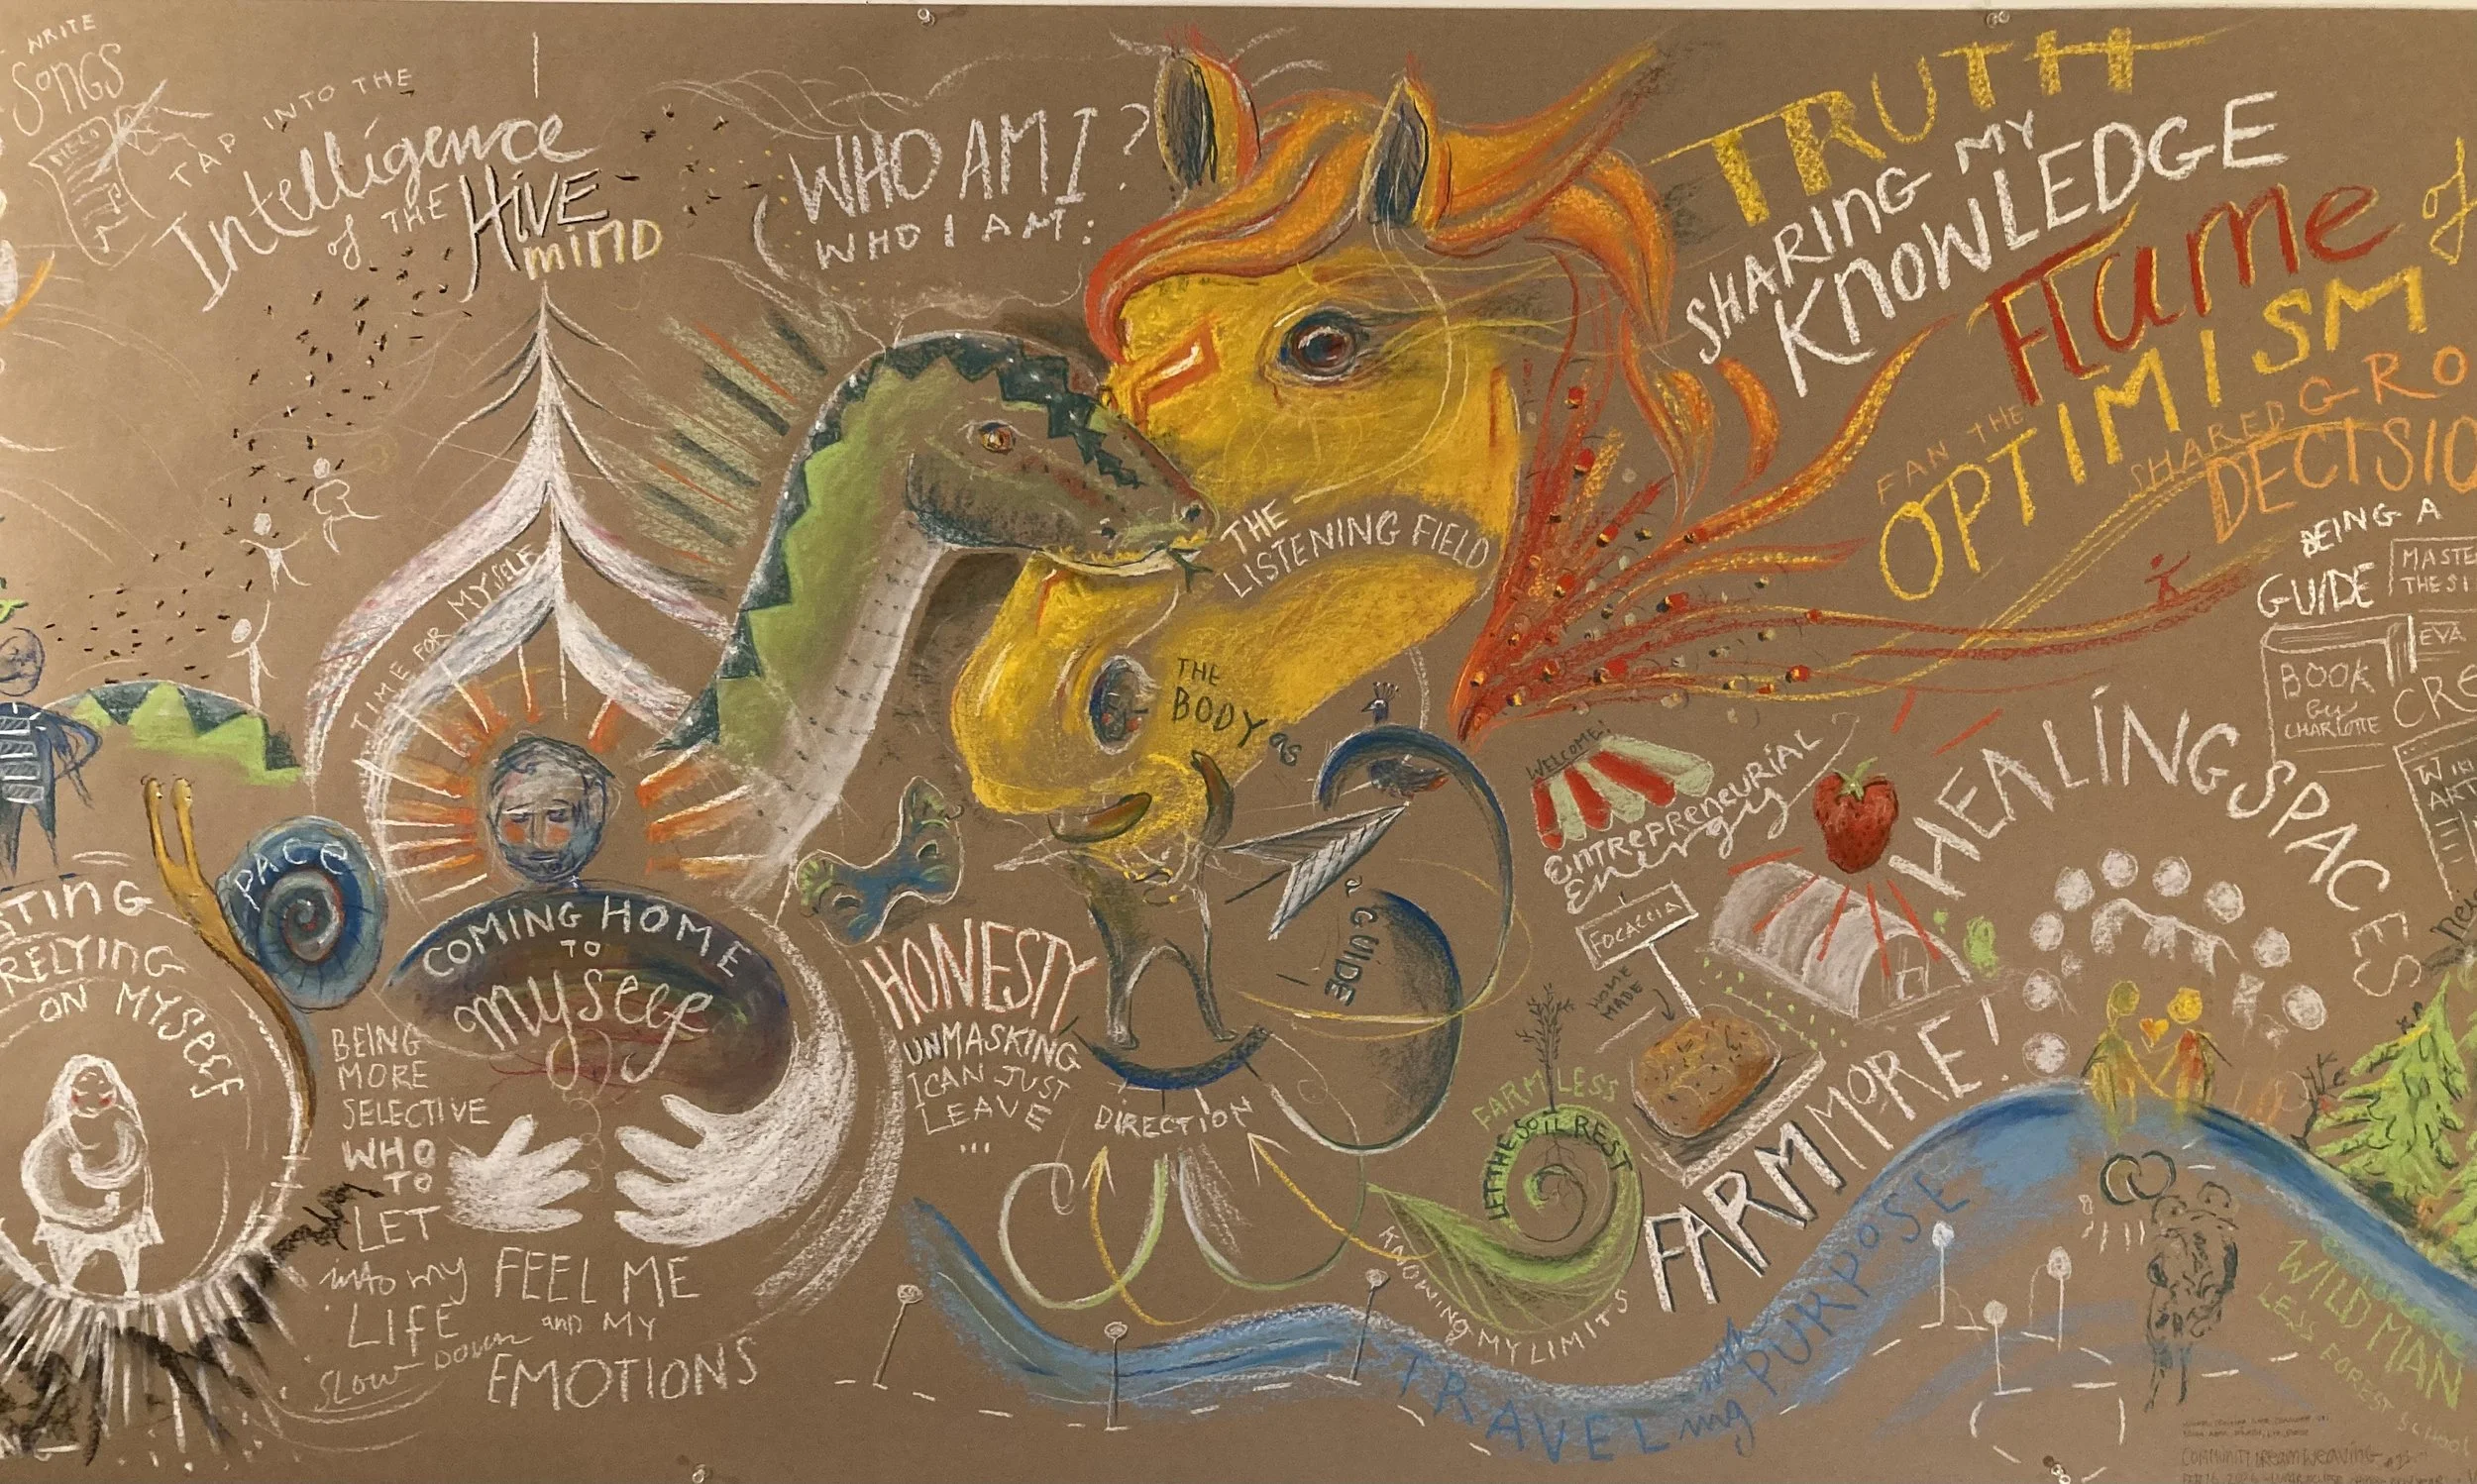 WRITE
SONGS
TAP INTO THE
Intelligence
of THE HIVE
mIND
WHO AM I?
WHO I AM:
TRUTH
SHARING MY
KNOWLEDGE
FAN THE
Flame of
OPTIMISM
SHARED GRO
DECISIO
BEING A
GUIDE
MASTE
THESI
BOOK
by
CHARLOTTE
EVA
CRE
ART
THE
LISTENING FIELD
TIME FOR MYSELF
THE
BODY as
a GUIDE
DIRECTION
PACE
COMING HOME
TO
myself
STING
RELYING
ON MYSELF
BEING
MORE
SELECTIVE
WHO
TO
LET
into my
LIFE
SLOW DOWN
FEEL ME
and MY
EMOTIONS
HONESTY
UNMASKING
I CAN JUST
LEAVE
...
WELCOME!
ENTREPRENEURIAL
Energy
FOCACCIA
HOME
MADE
HEALING SPACES
FARM MORE!
FARM LESS
LET THE SOIL REST
KNOWING MY LIMITS
TRAVELing with PURPOSE
WILD MAN
LESS FOREST SCHOOL
COMMUNITY DREAMWEAVING